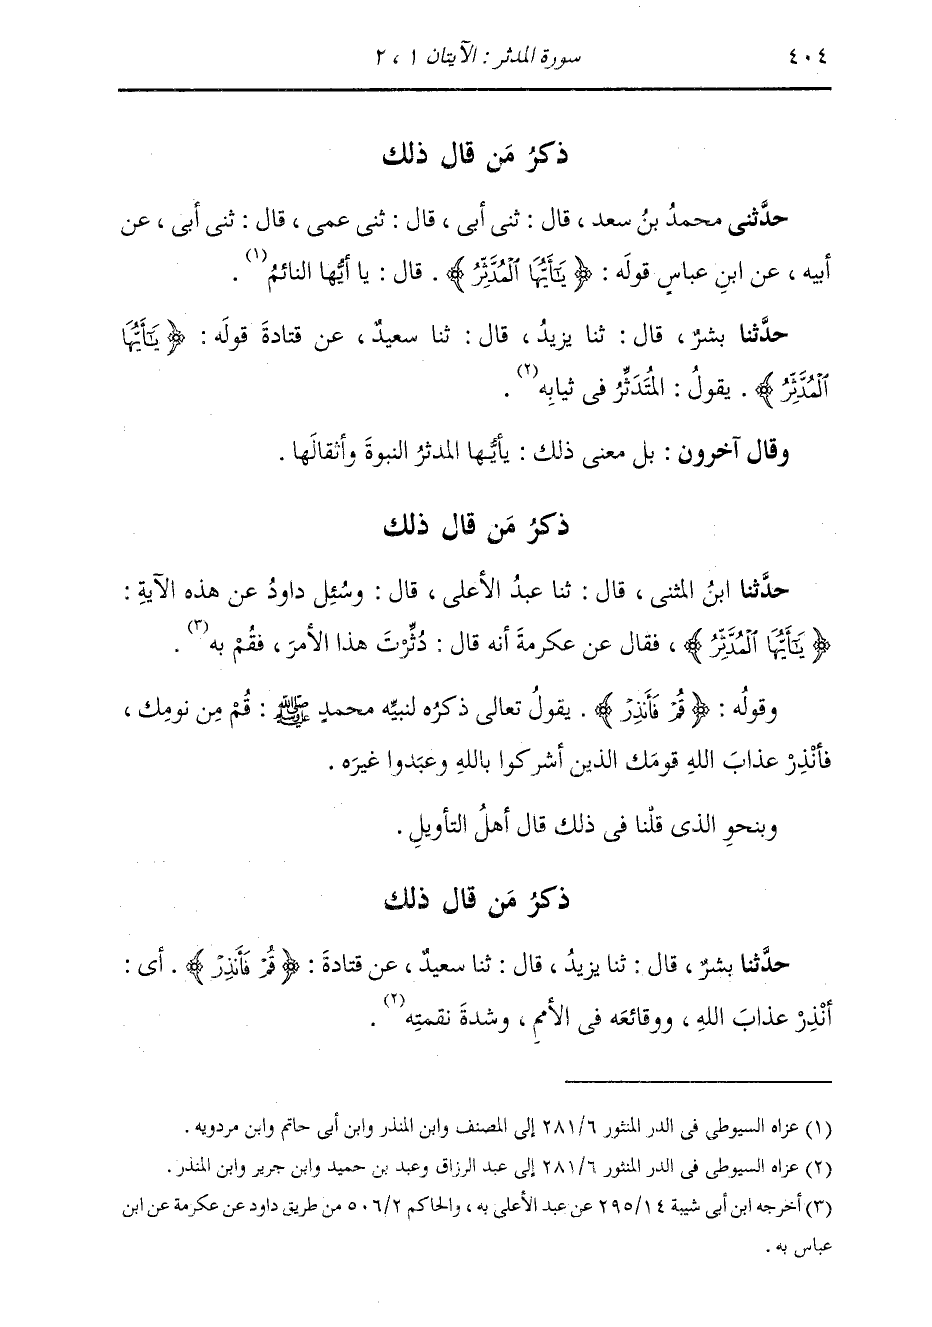 ٤٠٤ سورة المدثر : الآيتان ١ ، ٢
ذكرُ مَن قال ذلك
حدَّثنى محمدُ بنُ سعد ، قال : ثنى أبى ، قال : ثنى عمى ، قال : ثنى أبى ، عن
أبيه ، عن ابنِ عباسٍ قولَه : ﴿ يَٰٓأَيُّهَا ٱلْمُدَّثِّرُ ﴾ . قال : يا أيُّها النائمُ(١) .
حدَّثنا بشرٌ ، قال : ثنا يزيدُ ، قال : ثنا سعيدٌ ، عن قتادةَ قولَه : ﴿ يَٰٓأَيُّهَا
ٱلْمُدَّثِّرُ ﴾ . يقولُ : المُتَدَثِّرُ فى ثيابِه(٢) .
وقال آخرون : بل معنى ذلك : يأيُّها المدثرُ النبوةَ وأثقالَها .
ذكرُ مَن قال ذلك
حدَّثنا ابنُ المثنى ، قال : ثنا عبدُ الأعلى ، قال : وسُئِل داودُ عن هذه الآيةِ :
﴿ يَٰٓأَيُّهَا ٱلْمُدَّثِّرُ ﴾ ، فقال عن عكرمةَ أنه قال : دُثِّرْتَ هذا الأمرَ ، فقُمْ به(٣) .
وقولُه : ﴿ قُمْ فَأَنذِرْ ﴾ . يقولُ تعالى ذكرُه لنبيِّه محمدٍ ﷺ : قُمْ مِن نومِك ،
فأنْذِرْ عذابَ اللهِ قومَك الذين أشركوا باللهِ وعبَدوا غيرَه .
وبنحوِ الذى قلْنا فى ذلك قال أهلُ التأويلِ .
ذكرُ مَن قال ذلك
حدَّثنا بشرٌ ، قال : ثنا يزيدُ ، قال : ثنا سعيدٌ ، عن قتادةَ : ﴿ قُمْ فَأَنذِرْ ﴾ . أى :
أنْذِرْ عذابَ اللهِ ، ووقائعَه فى الأممِ ، وشدةَ نقمتِه(٢) .
(١) عزاه السيوطى فى الدر المنثور ٢٨١/٦ إلى المصنف وابن المنذر وابن أبى حاتم وابن مردويه .
(٢) عزاه السيوطى فى الدر المنثور ٢٨١/٦ إلى عبد الرزاق وعبد بن حميد وابن جرير وابن المنذر .
(٣) أخرجه ابن أبى شيبة ٢٩٥/١٤ عن عبد الأعلى به ، والحاكم ٥٠٦/٢ من طريق داود عن عكرمة عن ابن
عباس به .